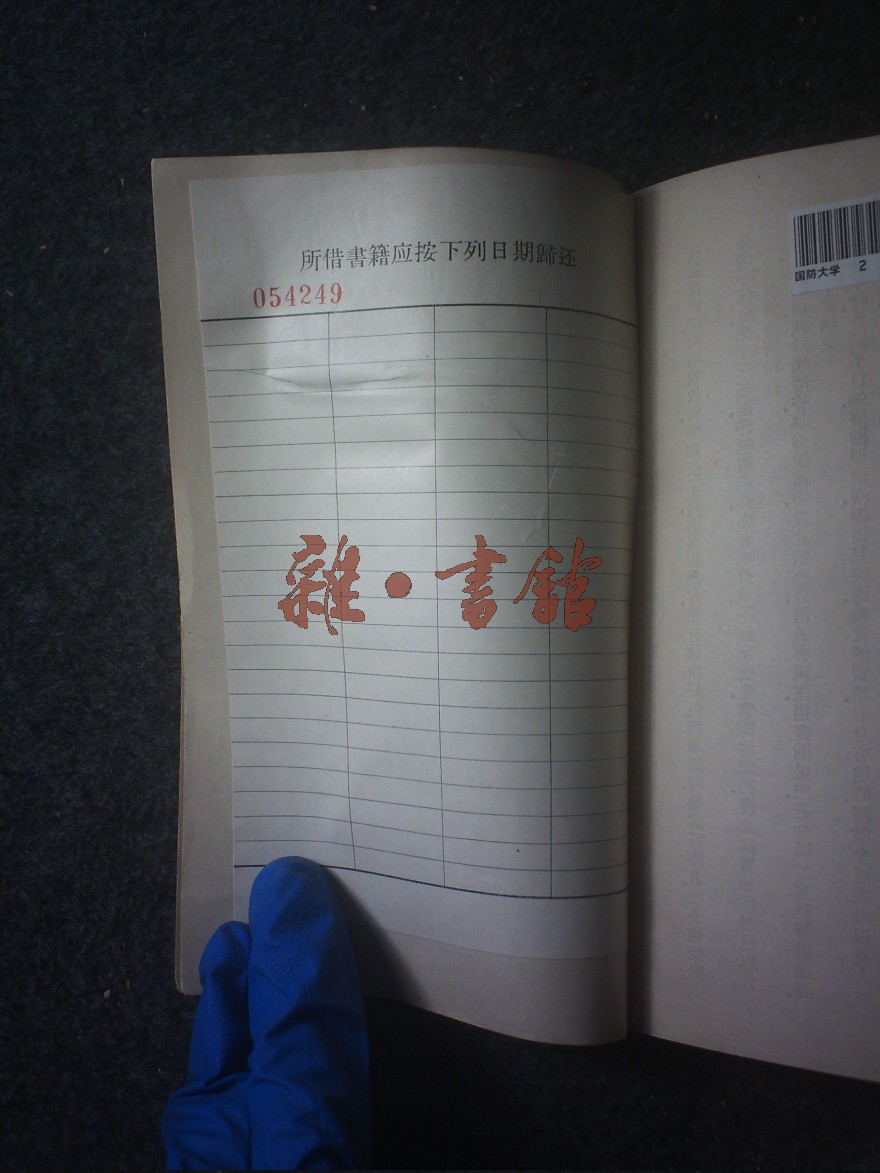 所借書籍应按下列日期歸还
054249
雜·書館
国防大学 2